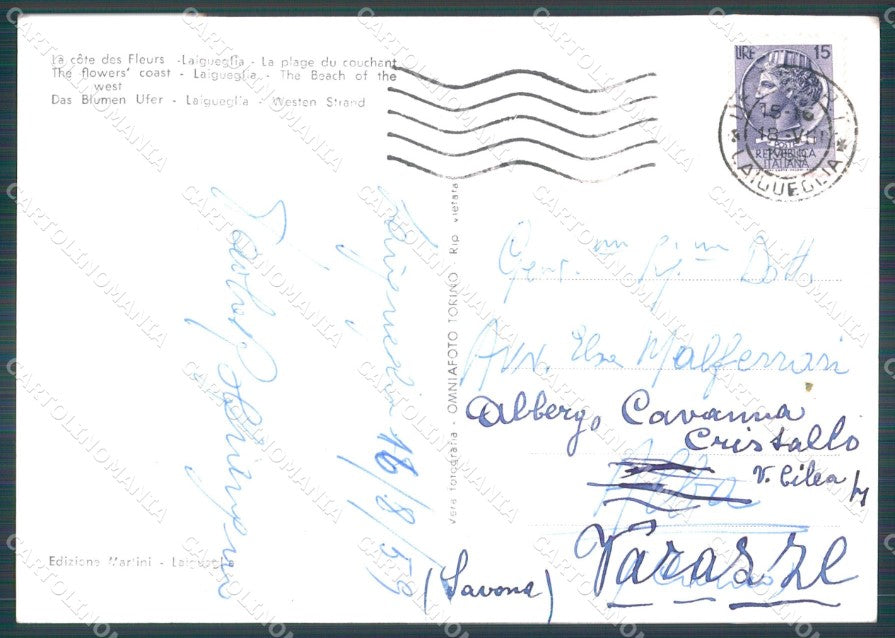 La côte des Fleurs - Laigueglia - La plage du couchant
The flowers' coast - Laigueglia - The Beach of the
west
Das Blumen Ufer - Laigueglia - Westen Strand
LIRE 15
POSTE
REPUBBLICA
ITALIANA
15-16
18-VIII
LAIGUEGLIA
Laigueglia 16/8/59
Vera fotografia - OMNIAFOTO TORINO - Rip. vietata
Gent.ma Sig.na Dott.
Avv. Elsa Malferrari
Albergo Cavanna
Cristallo
V. Cilea
Alba
Varazze
(Savona)
Edizione Martini - Laigueglia
CARTOLINOMANIA